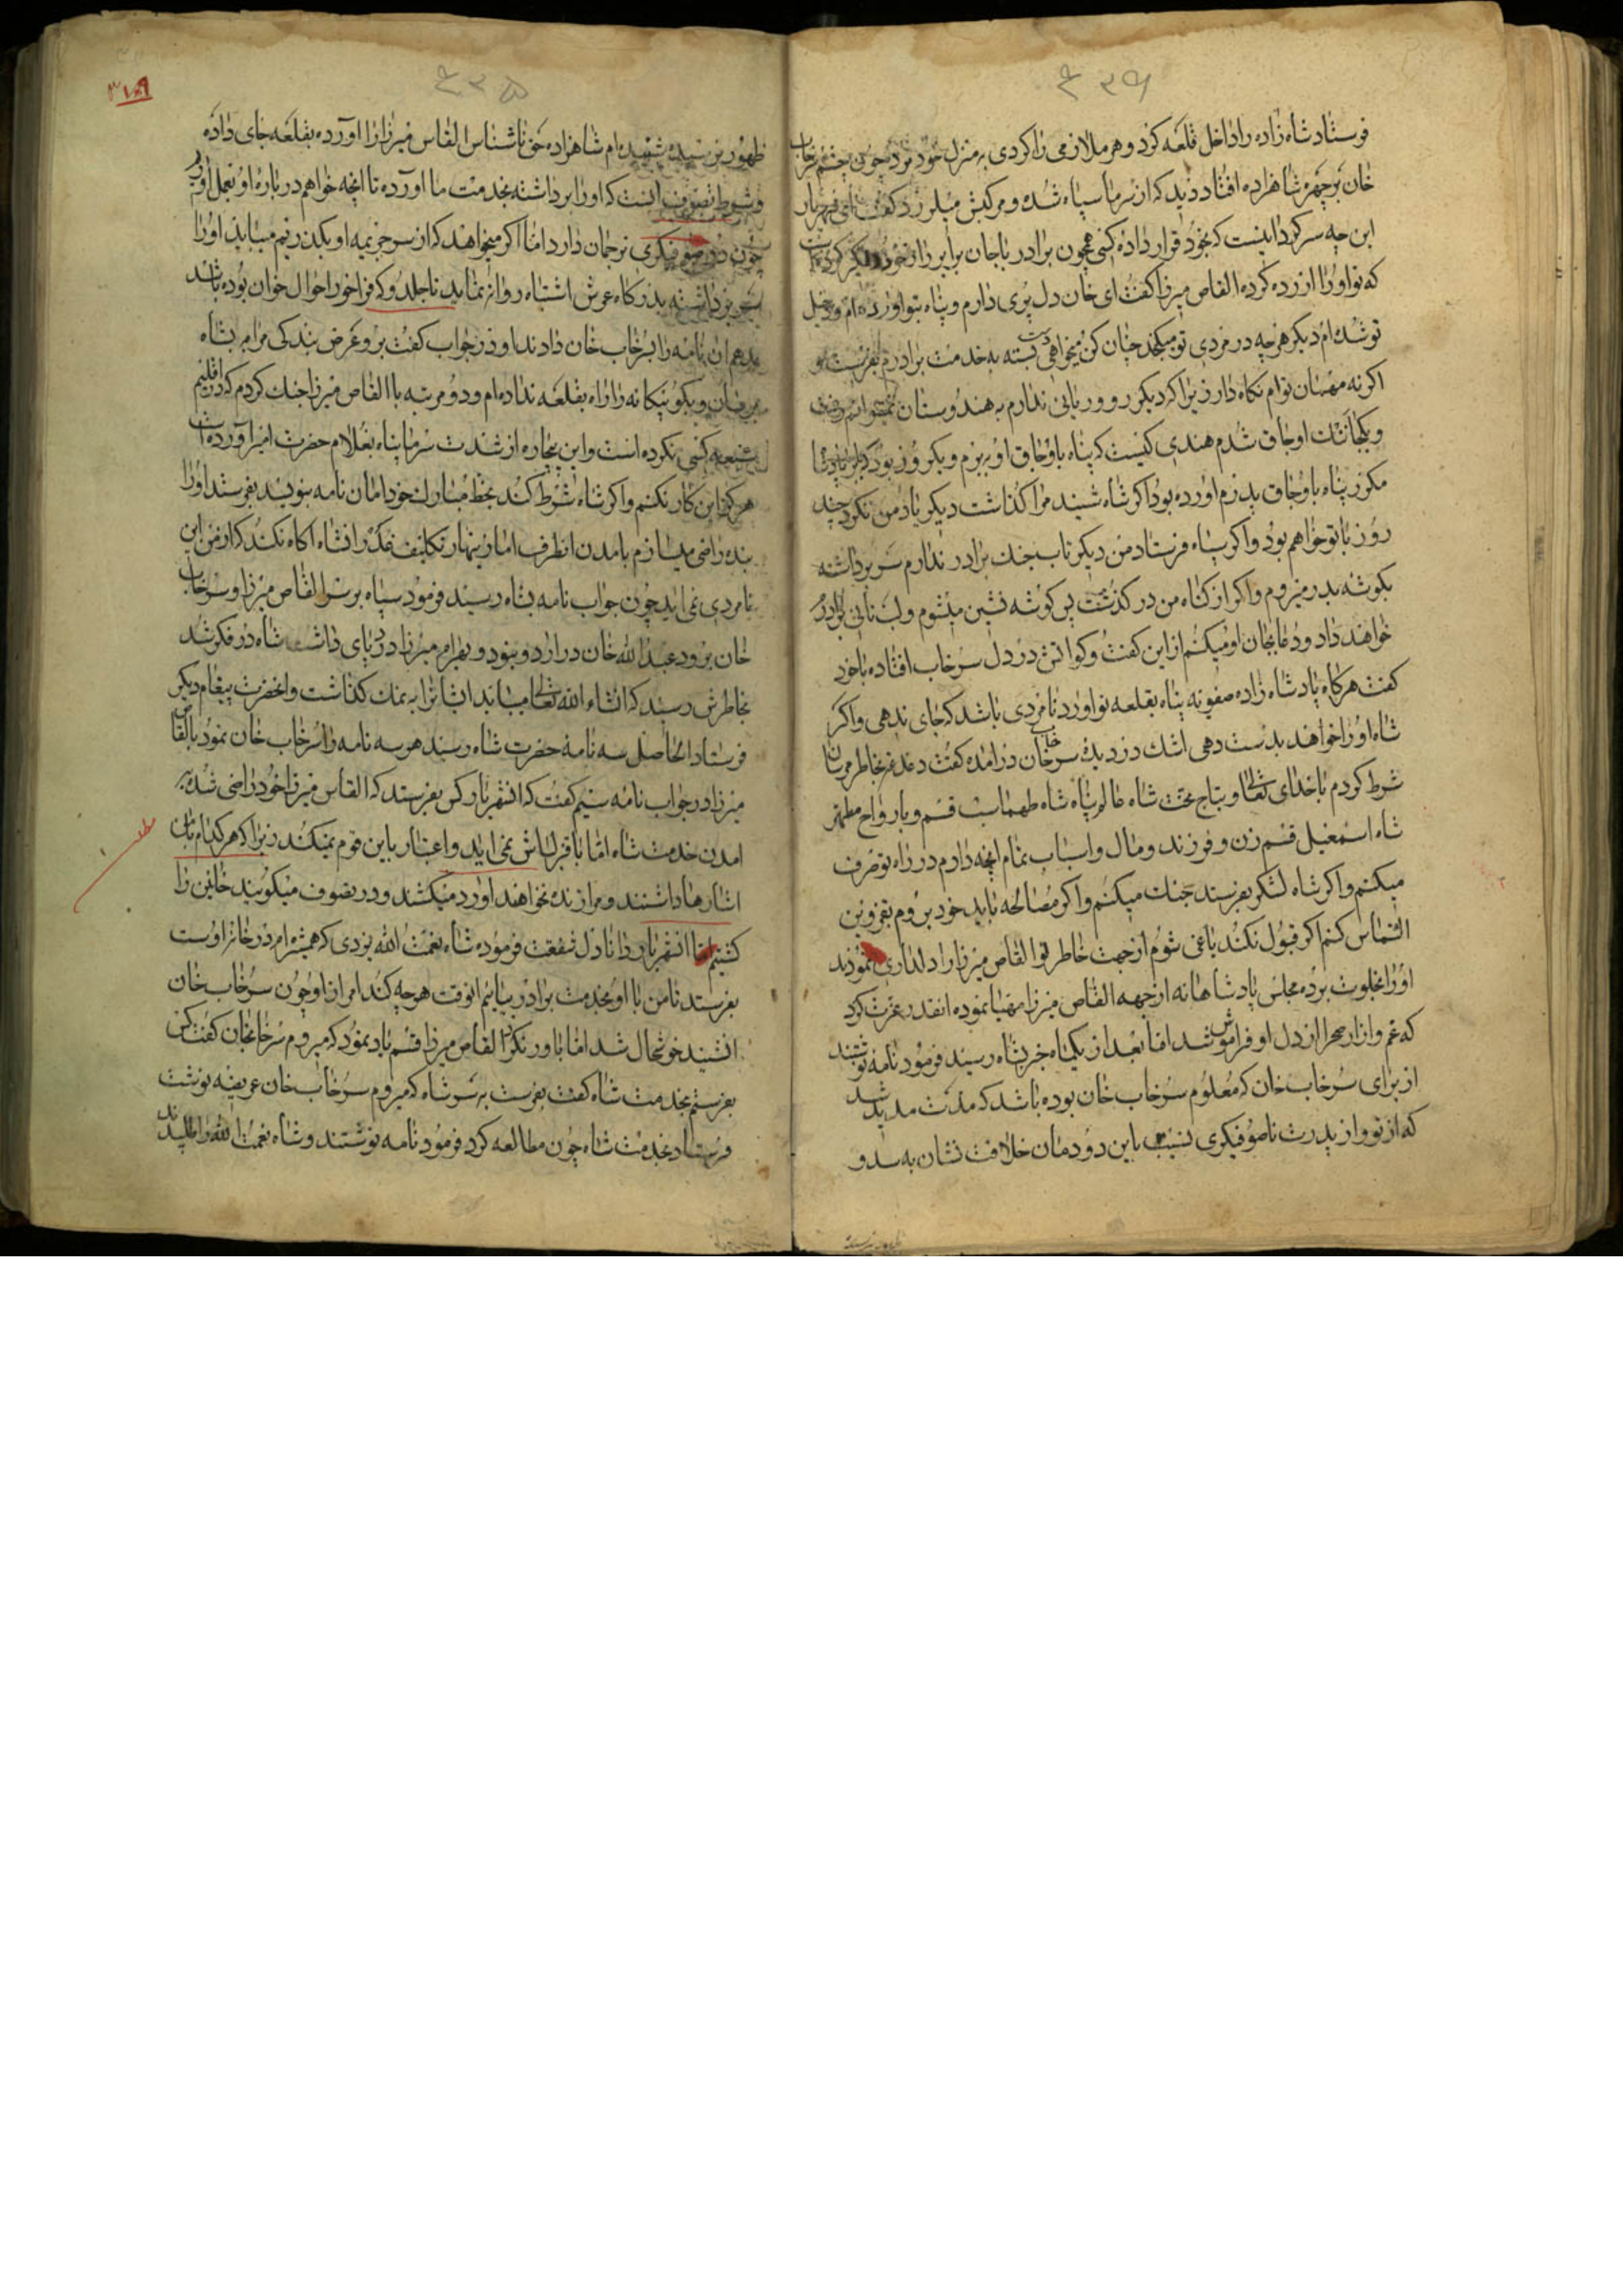 ۴۳۴
فرستاد شاه زاده را داخل قلعه کرد و هر ملازمی را کردی به منزل خود برد چون چشم سرخاب
خان بر چهره شاهزاده افتاد دید که از سرما سیاه شده و مرکبش میلرزد گفت ای شهریار
این چه سرگردانیست که بخود قرار داده کسی همچون برادر باجان برابر را از خود
که تو او را ازرده کرده القاص میرزا گفت ای خان دل پری دارم و پناه بتو اورده ام و دخیل
تو شده ام دیگر هر چه در مردی تو میکنجد چنان کن میخواهی دست بسته به خدمت برادرم بفرست و
اگر نه مهمان توام نگاه دار زیرا که دیگر رو و ربائی ندارم به هندوستان
و یکجانتک اوجاق شدم هندی کیست که پناه باوجاق او بریزم و یکروز بود که پدر
مکرر پناه باوجاق پدرم اورده بود اگر شاه شنید مرا گذاشت دیگر یاد من نکرد چند
روز با تو خواهم بود و اگر سپاه فرستاد من دیگر تاب جنک برادر ندارم سر برداشته
بگوشه بدر میروم و اگر از گناه من در گذشت پس گوشه نشین میشوم و لب نانی برادرم
خواهند داد و دعا بجان او میکنم از این گفت و گو اتش در دل سرخاب افتاده با خود
گفت هرگاه پادشاه زاده صفویه پناه بقلعه تو اورد نامردی باشد که جای ندهی و اگر
شاه او را خواهند بدست دهی اشک در دیدۀ سرخاب خان در امده گفت دغدغه بخاطر مرسان
شرط کردم با خدای تعالی و بتاج بخت شاه عالم پناه شاه طهماسب قسم و بارواح مطهر
شاه اسمعیل قسم زن و فرزند و مال و اسباب تمام انچه دارم در راه تو صرف
میکنم و اگر شاه لشگر بفرستد جنک میکنم و اگر مصالحه باید خود بروم بقزوین
التماس کنم اگر قبول نکند یاغی شوم از جهت خاطر تو القاص میرزا را دلداری نمودند
او را بخلوت برده مجلس پادشاهانه از جهه القاص میرزا مهیا نموده انقدر عزت کرد
که غم و ازار صحرا از دل او فراموش شد اما بعد از یکماه خبر بشاه رسید فرمود نامه نوشتند
از برای سرخاب خان که معلوم سرخاب خان بوده باشد که مدت مدید شد
که از تو و از پدرت ناصوفیگری نسبت باین دودمان خلافت نشان به سد و
۴۳۵
۳۱۹
ظهور نرسیده شنیده ام شاهزاده حق ناشناس القاس میرزا را اورده بقلعه جای داده
و شرط تصوف انست که او را برداشته بخدمت ما اورده تا انچه خواهم درباره او بعمل اوریم
چون در صوفیگری ترجمان دارد اما اگر میخواهند که از سر جریمه او بگذریم میباید او را
برداشته بدرگاه عرش اشتباه روانه نماید تا جلدو که فراخور احوال خوان بوده باشد
بدهم ان نامه را بسرخاب خان دادند او در جواب گفت برو عرض بندگی مرا بشاه
برسان و بگو بیگانه را راه بقلعه نداده ام و دو مرتبه با القاص میرزا جنک کردم که در اقلیم
کسی نکرده است و این بیچاره از شدت سرما پناه بغلام حضرت امیر آورده است
هرگز این کار نکنم و اگر شاه شرط کند بخط مبارک خود امان نامه بنویسد بفرستد او را
بنده راضی میسازم بامدن انطرف اما زینهار تکلیف غدر را شاه اگاه نکند که از من این
نامردی نمی اید چون جواب نامه بشاه رسید فرمود سپاه بر سر القاص میرزا و سرخاب
خان برود عبدالله خان در اردو بنود و بهرام میرزا درد پای داشت شاه در فکر شد
بخاطرش رسید که انشاء الله تعالی میباید اینانرا به نمک گذاشت و انحضرت پیغام دیگر
فرستاد الحاصل سه نامه حضرت شاه رسید هر سه نامه را سرخاب خان نمود بالقاص
میرزا در جواب نامه سیم گفت که انشهریار کس بفرستد که القاس میرزا خود راضی شده بر
امدن خدمت شاه اما با قزلباش نمی اید و اعتبار باین قوم نمیکند زیرا که هر کدام باین
اشارها داشتند و مرا زنده نخواهند اورد میکشند و در تصوف میگویند خائن را
کشتیم اما انشهریار دانا دل شفقت فرموده شاه نعمت الله یزدی که همشیره ام در خانۀ اوست
بفرستد تا من با او بخدمت برادر بیایم انوقت هر چه کند امر از او چون سرخاب خان
انشنید خوشحال شد اما باور نکرد القاص میرزا قسم یاد نمود که میروم سرخابخان گفت کس
بفرستم بخدمت شاه گفت بفرست به سر شاه که میروم سرخاب خان عریضه نوشت
فرستاد بخدمت شاه چون مطالعه کرد فرمود نامه نوشتند و شاه نعمت الله را طلبیدند